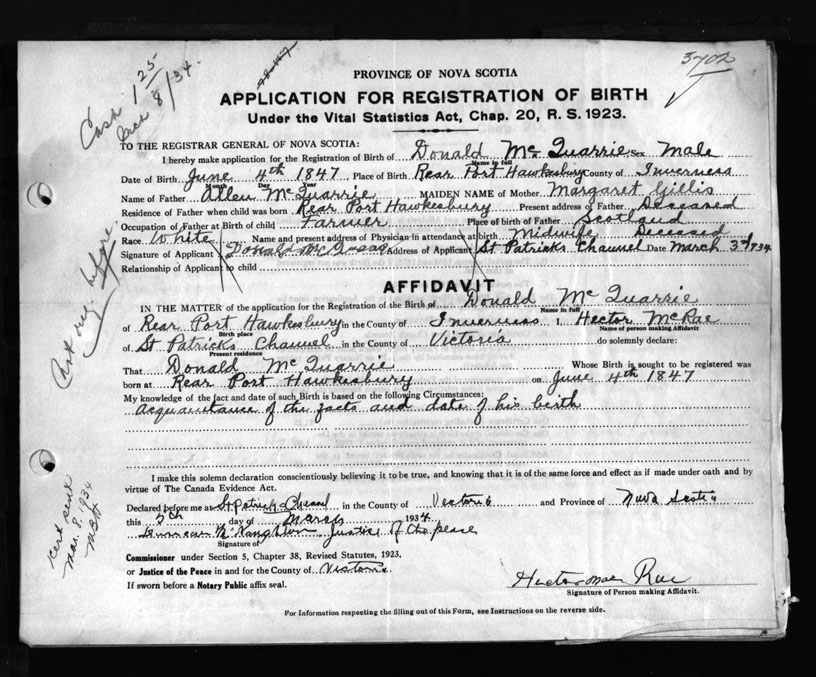 3702
Cash 1 25
Mch 8/34.
PROVINCE OF NOVA SCOTIA
APPLICATION FOR REGISTRATION OF BIRTH
Under the Vital Statistics Act, Chap. 20, R. S. 1923.
TO THE REGISTRAR GENERAL OF NOVA SCOTIA:
I hereby make application for the Registration of Birth of Donald Mc Quarrie Sex Male
Name in full
Date of Birth June 4th 1847 Place of Birth Rear Port Hawkesbury County of Inverness
Month Day Year
Name of Father Allen McQuarrie MAIDEN NAME of Mother Margaret Gillis
Residence of Father when child was born Rear Port Hawkesbury Present address of Father Deceased
Occupation of Father at Birth of child Farmer Place of birth of Father Scotland
Race White Name and present address of Physician in attendance at birth Midwife Deceased
Signature of Applicant Donald Address of Applicant St Patricks Channel Date March 3rd 1934
Relationship of Applicant to child
AFFIDAVIT
IN THE MATTER of the application for the Registration of the Birth of Donald Mc Quarrie
Name in full
of Rear Port Hawkesbury in the County of Inverness I, Hector McRae
Birth place Name of person making Affidavit
of St Patricks Channel in the County of Victoria do solemnly declare:
Present residence
That Donald Mc Quarrie Whose Birth is sought to be registered was
born at Rear Port Hawkesbury on June 4th 1847
My knowledge of the fact and date of such Birth is based on the following Circumstances:
acquaintance of the facts and date of his birth
I make this solemn declaration conscientiously believing it to be true, and knowing that it is of the same force and effect as if made under oath and by
virtue of The Canada Evidence Act.
Declared before me at St Patricks Channel in the County of Victoria and Province of Nova Scotia
this 5th day of March 1934
Duncan McNaughton Justice of the peace
Signature of
Commissioner under Section 5, Chapter 38, Revised Statutes, 1923,
or Justice of the Peace in and for the County of Victoria
If sworn before a Notary Public affix seal.
Hector Mac Rae
Signature of Person making Affidavit.
For Information respecting the filling out of this Form, see Instructions on the reverse side.
before
Cert sent
Mar. 8, 1934